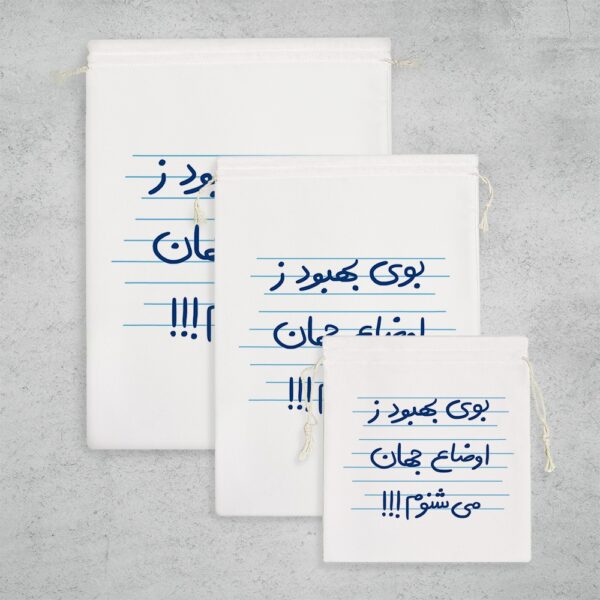 بود ز
جهان
م!!!
بوی بهبود ز
اوضاع جهان
م!!!
بوی بهبود ز
اوضاع جهان
می‌شنوم!!!